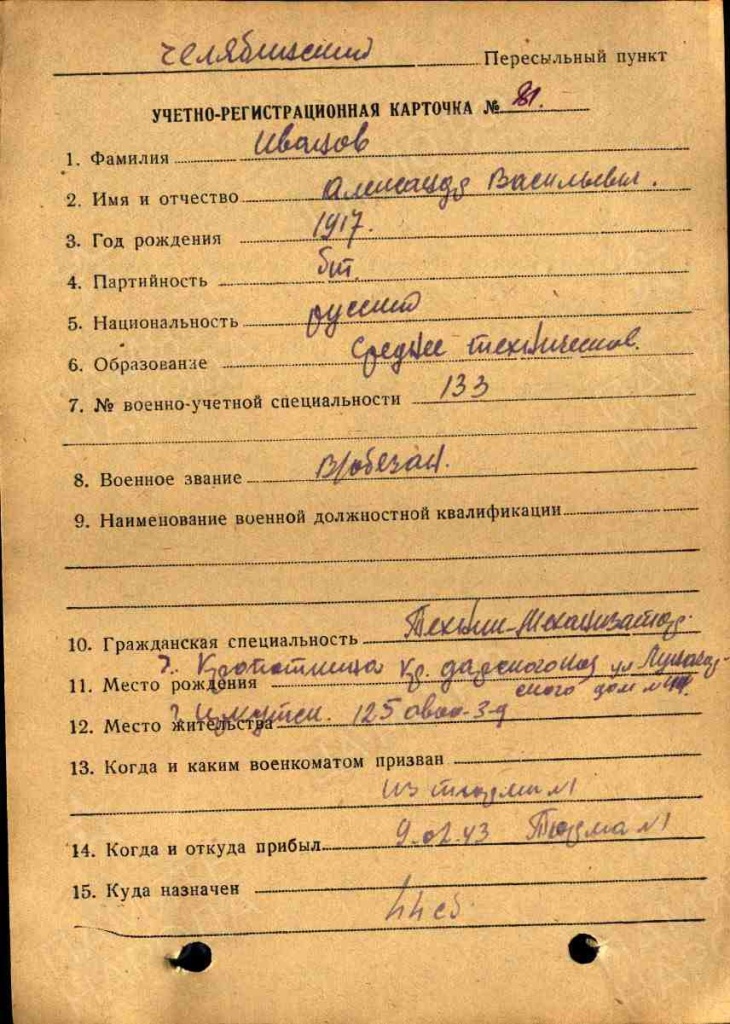 Челябинский Пересыльный пункт
УЧЕТНО-РЕГИСТРАЦИОННАЯ КАРТОЧКА № 81.
1. Фамилия Ивацов
2. Имя и отчество Александр Васильевич.
3. Год рождения 1917.
4. Партийность бп.
5. Национальность русский
6. Образование Среднее техническое.
7. № военно-учетной специальности 133
8. Военное звание в/обязан.
9. Наименование военной должностной квалификации
10. Гражданская специальность Техник-механизатор.
г. Кропоткина Кр. дарского ул
11. Место рождения ского дом №
12. Место жительства г. Иркутск. 125 3-д
13. Когда и каким военкоматом призван
из тюрьмы №1
14. Когда и откуда прибыл 9.02.43 Тюрьма №1
15. Куда назначен
44 сб